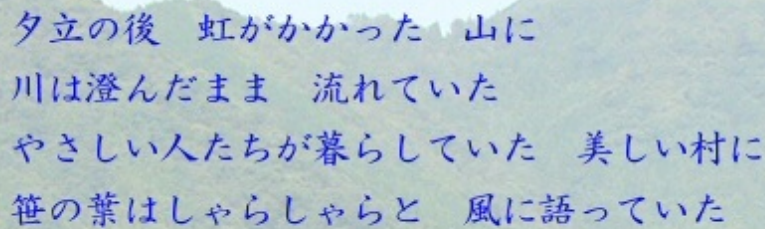 夕立の後　虹がかかった　山に
川は澄んだまま　流れていた
やさしい人たちが暮らしていた　美しい村に
笹の葉はしゃらしゃらと　風に語っていた